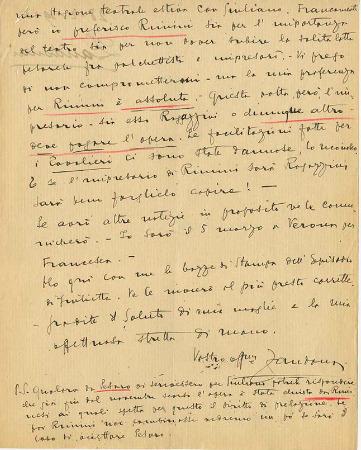 una stagione teatrale estiva con Giuliano. Francamente
però io preferisco Rimini sia per l'importanza
del teatro sia per non dover subire la solita lotta
fra palchettista e impresari. - Vi prego
di non compromettermi - ma la mia preferenza
per Rimini è assoluta. Questa volta però l'im-
presario - sia esso Ragazzini o chiunque altro -
deve pagare l'opera. Le facilitazioni fatte per
i Cavalieri ci sono state dannose, lo
E se l'impresario di Rimini sarà Ragazzini
sarà bene farglielo capire! -
Se avrò altre notizie in proposito ve le comu-
nicherò. - Io sarò il 5 marzo a Verona per
Francesca. -
Ho qui con me le bozze di stampa dell'
di Giulietta. Ve le manderò al più presto corrette.
- Gradite il saluto di mia moglie e la mia
affettuosa stretta di mano.
Vostro aff Zandonai
P.S. Qualora da Pesaro vi scrivessero per Giuliano potete rispondere
che già dal novembre scorso l'opera è stata chiesta da Rimi-
nesi ai quali spetta per questo il diritto di prelazione. Se
poi Rimini non combinasse vedremo un po' se sarà il
caso di accettare Pesaro.